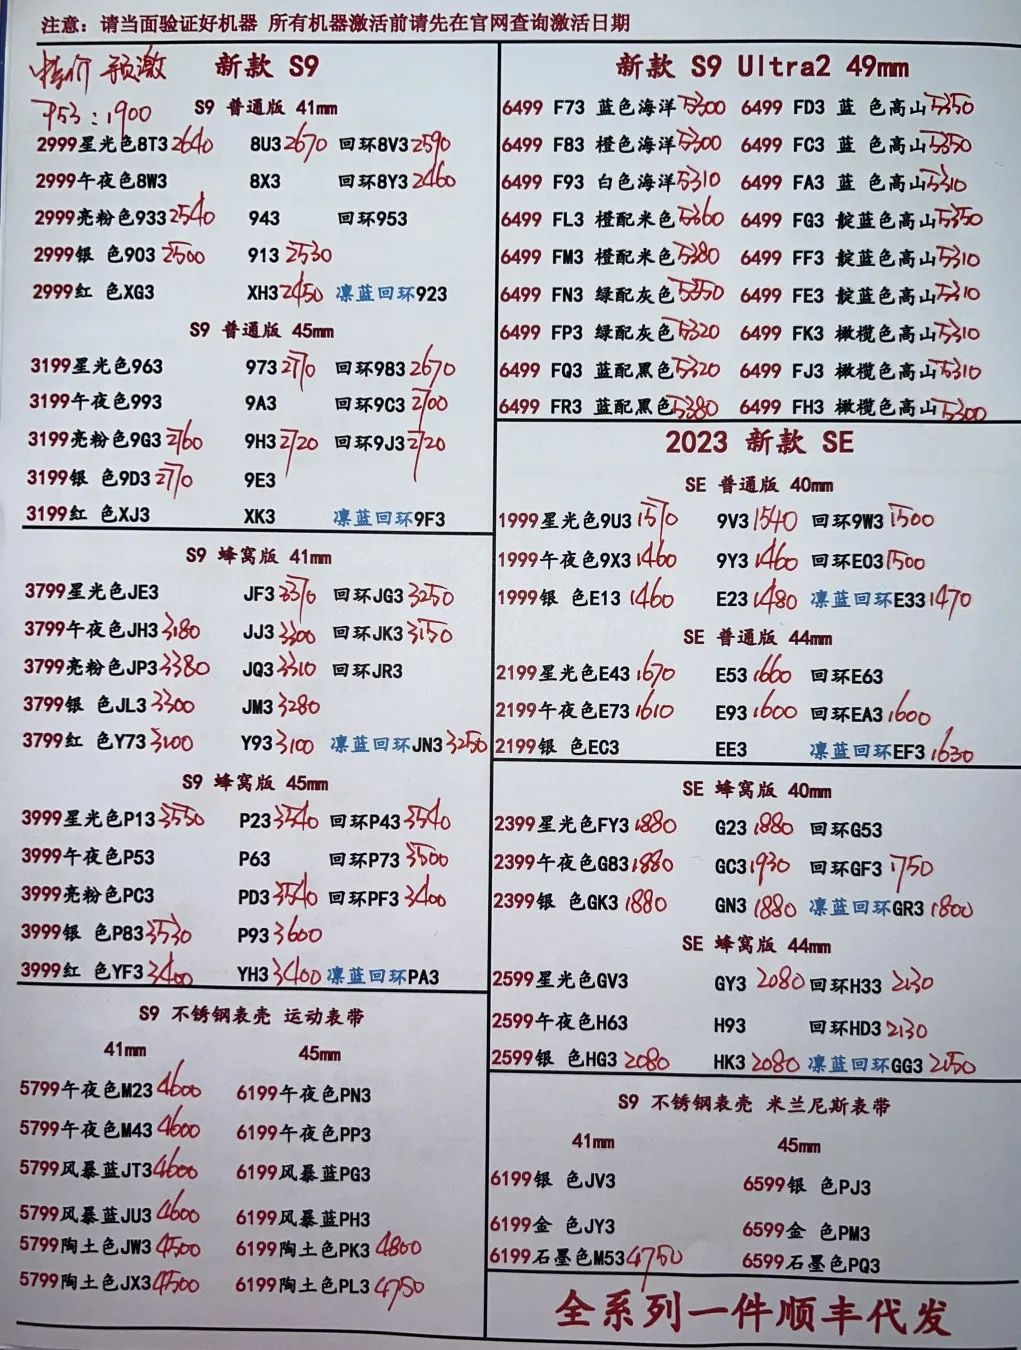 注意：请当面验证好机器 所有机器激活前请先在官网查询激活日期
特价 预激
P53：1900
新款 S9
S9 普通版 41mm
2999星光色8T3 2640 8U3 2670 回环8V3 2590
2999午夜色8W3 8X3 回环8Y3 2460
2999亮粉色933 2540 943 回环953
2999银 色903 2500 913 2530
2999红 色XG3 XH3 2450 凛蓝回环923
S9 普通版 45mm
3199星光色963 973 2770 回环983 2670
3199午夜色993 9A3 回环9C3 2700
3199亮粉色9G3 2760 9H3 2720 回环9J3 2720
3199银 色9D3 2770 9E3
3199红 色XJ3 XK3 凛蓝回环9F3
S9 蜂窝版 41mm
3799星光色JE3 JF3 3370 回环JG3 3250
3799午夜色JH3 3180 JJ3 3300 回环JK3 3150
3799亮粉色JP3 3380 JQ3 3310 回环JR3
3799银 色JL3 3300 JM3 3280
3799红 色Y73 3100 Y93 3100 凛蓝回环JN3 3250
S9 蜂窝版 45mm
3999星光色P13 3550 P23 3540 回环P43 3540
3999午夜色P53 P63 回环P73 3500
3999亮粉色PC3 PD3 3540 回环PF3 3400
3999银 色P83 3530 P93 3600
3999红 色YF3 3400 YH3 3400 凛蓝回环PA3
S9 不锈钢表壳 运动表带
41mm 45mm
5799午夜色M23 4600 6199午夜色PN3
5799午夜色M43 4600 6199午夜色PP3
5799风暴蓝JT3 4600 6199风暴蓝PG3
5799风暴蓝JU3 4600 6199风暴蓝PH3
5799陶土色JW3 4500 6199陶土色PK3 4800
5799陶土色JX3 4500 6199陶土色PL3 4750
新款 S9 Ultra2 49mm
6499 F73 蓝色海洋 5300 6499 FD3 蓝 色高山 5350
6499 F83 橙色海洋 5300 6499 FC3 蓝 色高山 5350
6499 F93 白色海洋 5310 6499 FA3 蓝 色高山 5310
6499 FL3 橙配米色 5360 6499 FG3 靛蓝色高山 5350
6499 FM3 橙配米色 5380 6499 FF3 靛蓝色高山 5310
6499 FN3 绿配灰色 5350 6499 FE3 靛蓝色高山 5310
6499 FP3 绿配灰色 5320 6499 FK3 橄榄色高山 5310
6499 FQ3 蓝配黑色 5320 6499 FJ3 橄榄色高山 5310
6499 FR3 蓝配黑色 5380 6499 FH3 橄榄色高山 5300
2023 新款 SE
SE 普通版 40mm
1999星光色9U3 1570 9V3 1540 回环9W3 1500
1999午夜色9X3 1460 9Y3 1460 回环E03 1500
1999银 色E13 1460 E23 1480 凛蓝回环E33 1470
SE 普通版 44mm
2199星光色E43 1670 E53 1660 回环E63
2199午夜色E73 1610 E93 1600 回环EA3 1600
2199银 色EC3 EE3 凛蓝回环EF3 1630
SE 蜂窝版 40mm
2399星光色FY3 1880 G23 1880 回环G53
2399午夜色G83 1880 GC3 1930 回环GF3 1750
2399银 色GK3 1880 GN3 1880 凛蓝回环GR3 1800
SE 蜂窝版 44mm
2599星光色GV3 GY3 2080 回环H33 2130
2599午夜色H63 H93 回环HD3 2130
2599银 色HG3 2080 HK3 2080 凛蓝回环GG3 2150
S9 不锈钢表壳 米兰尼斯表带
41mm 45mm
6199银 色JV3 6599银 色PJ3
6199金 色JY3 6599金 色PM3
6199石墨色M53 4750 6599石墨色PQ3
全系列一件顺丰代发